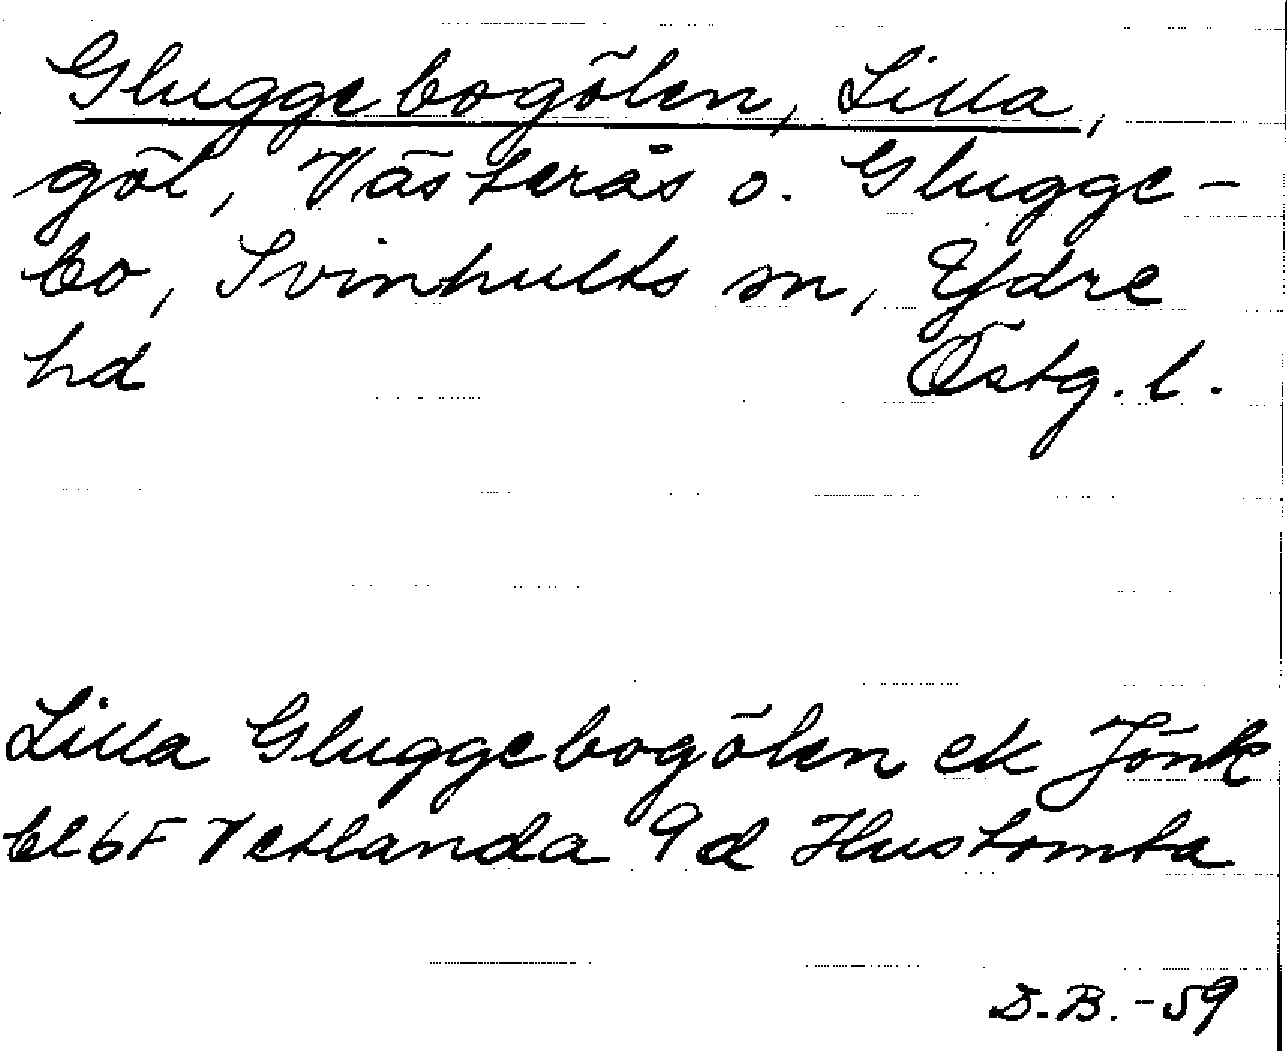 Gluggebogölen, Lilla,
göl, Västerås o. Glugge-
bo, Svinhults sn, Ydre
hd Östg. l.
Lilla Gluggebogölen ek Jönk
bl 6F Vetlanda 9d Hustomta
D.B. -59